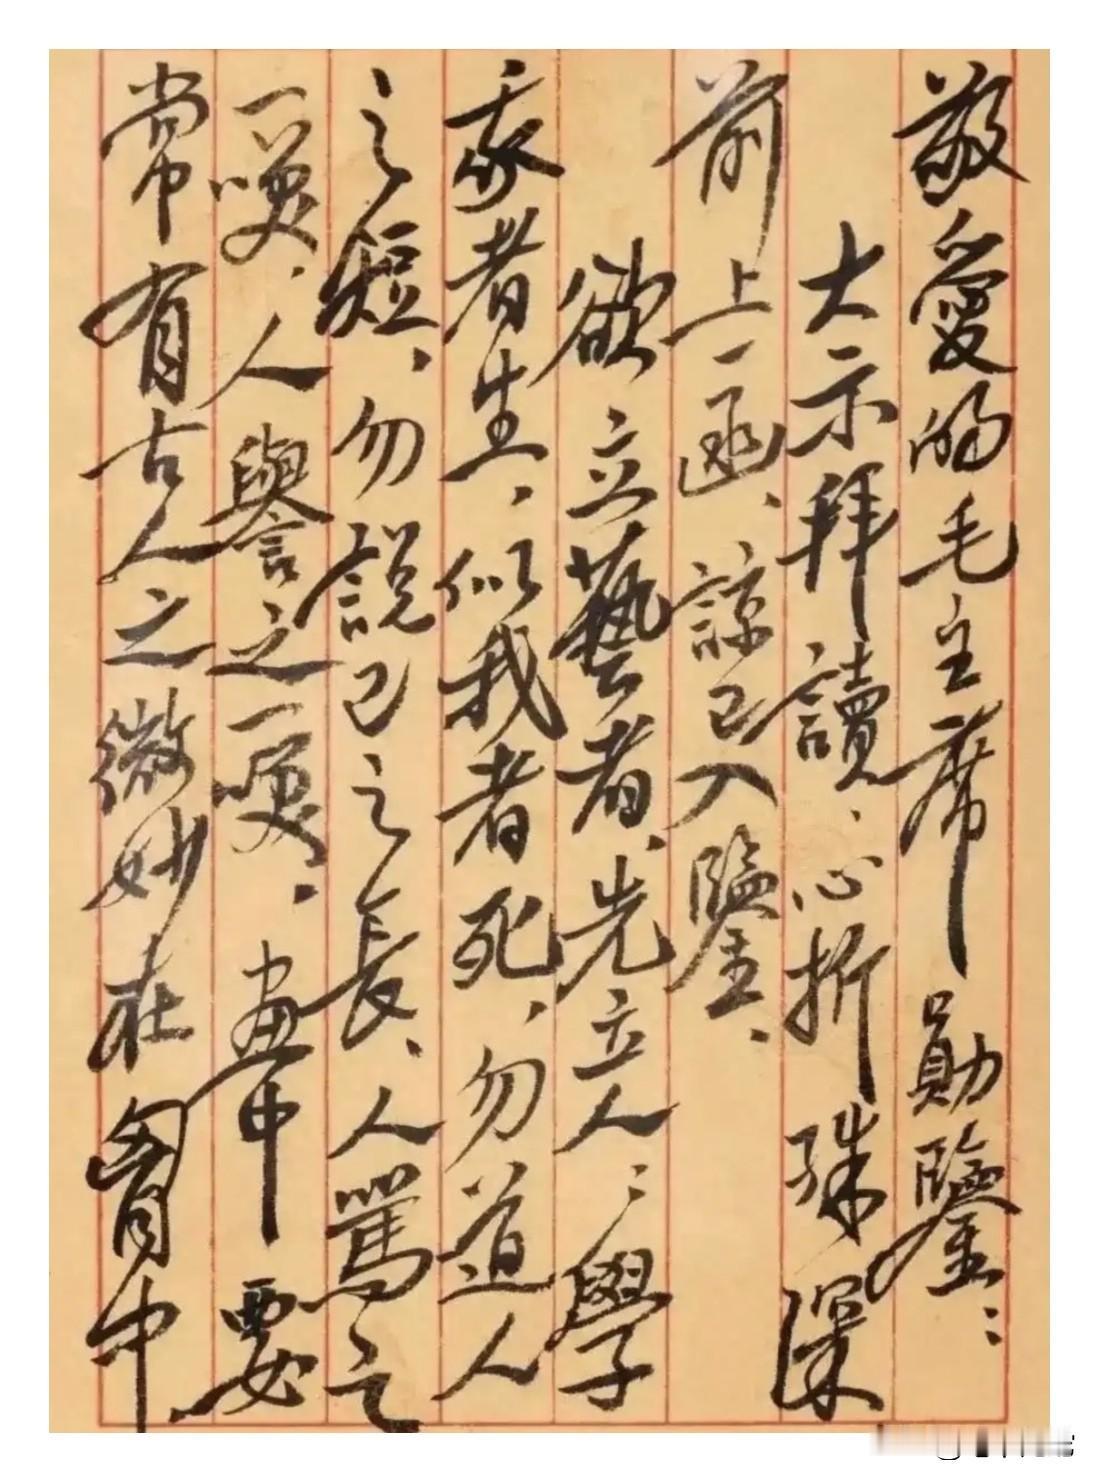 敬愛的毛主席勛鑒：
大示拜讀、心折殊深
前上一函、諒已入鑒、
欲立藝者、先立人；學
我者生，似我者死，勿道人
之短，勿說己之長、人罵之
一咲，人譽之一咲，畫中要
常有古人之微妙在胷中